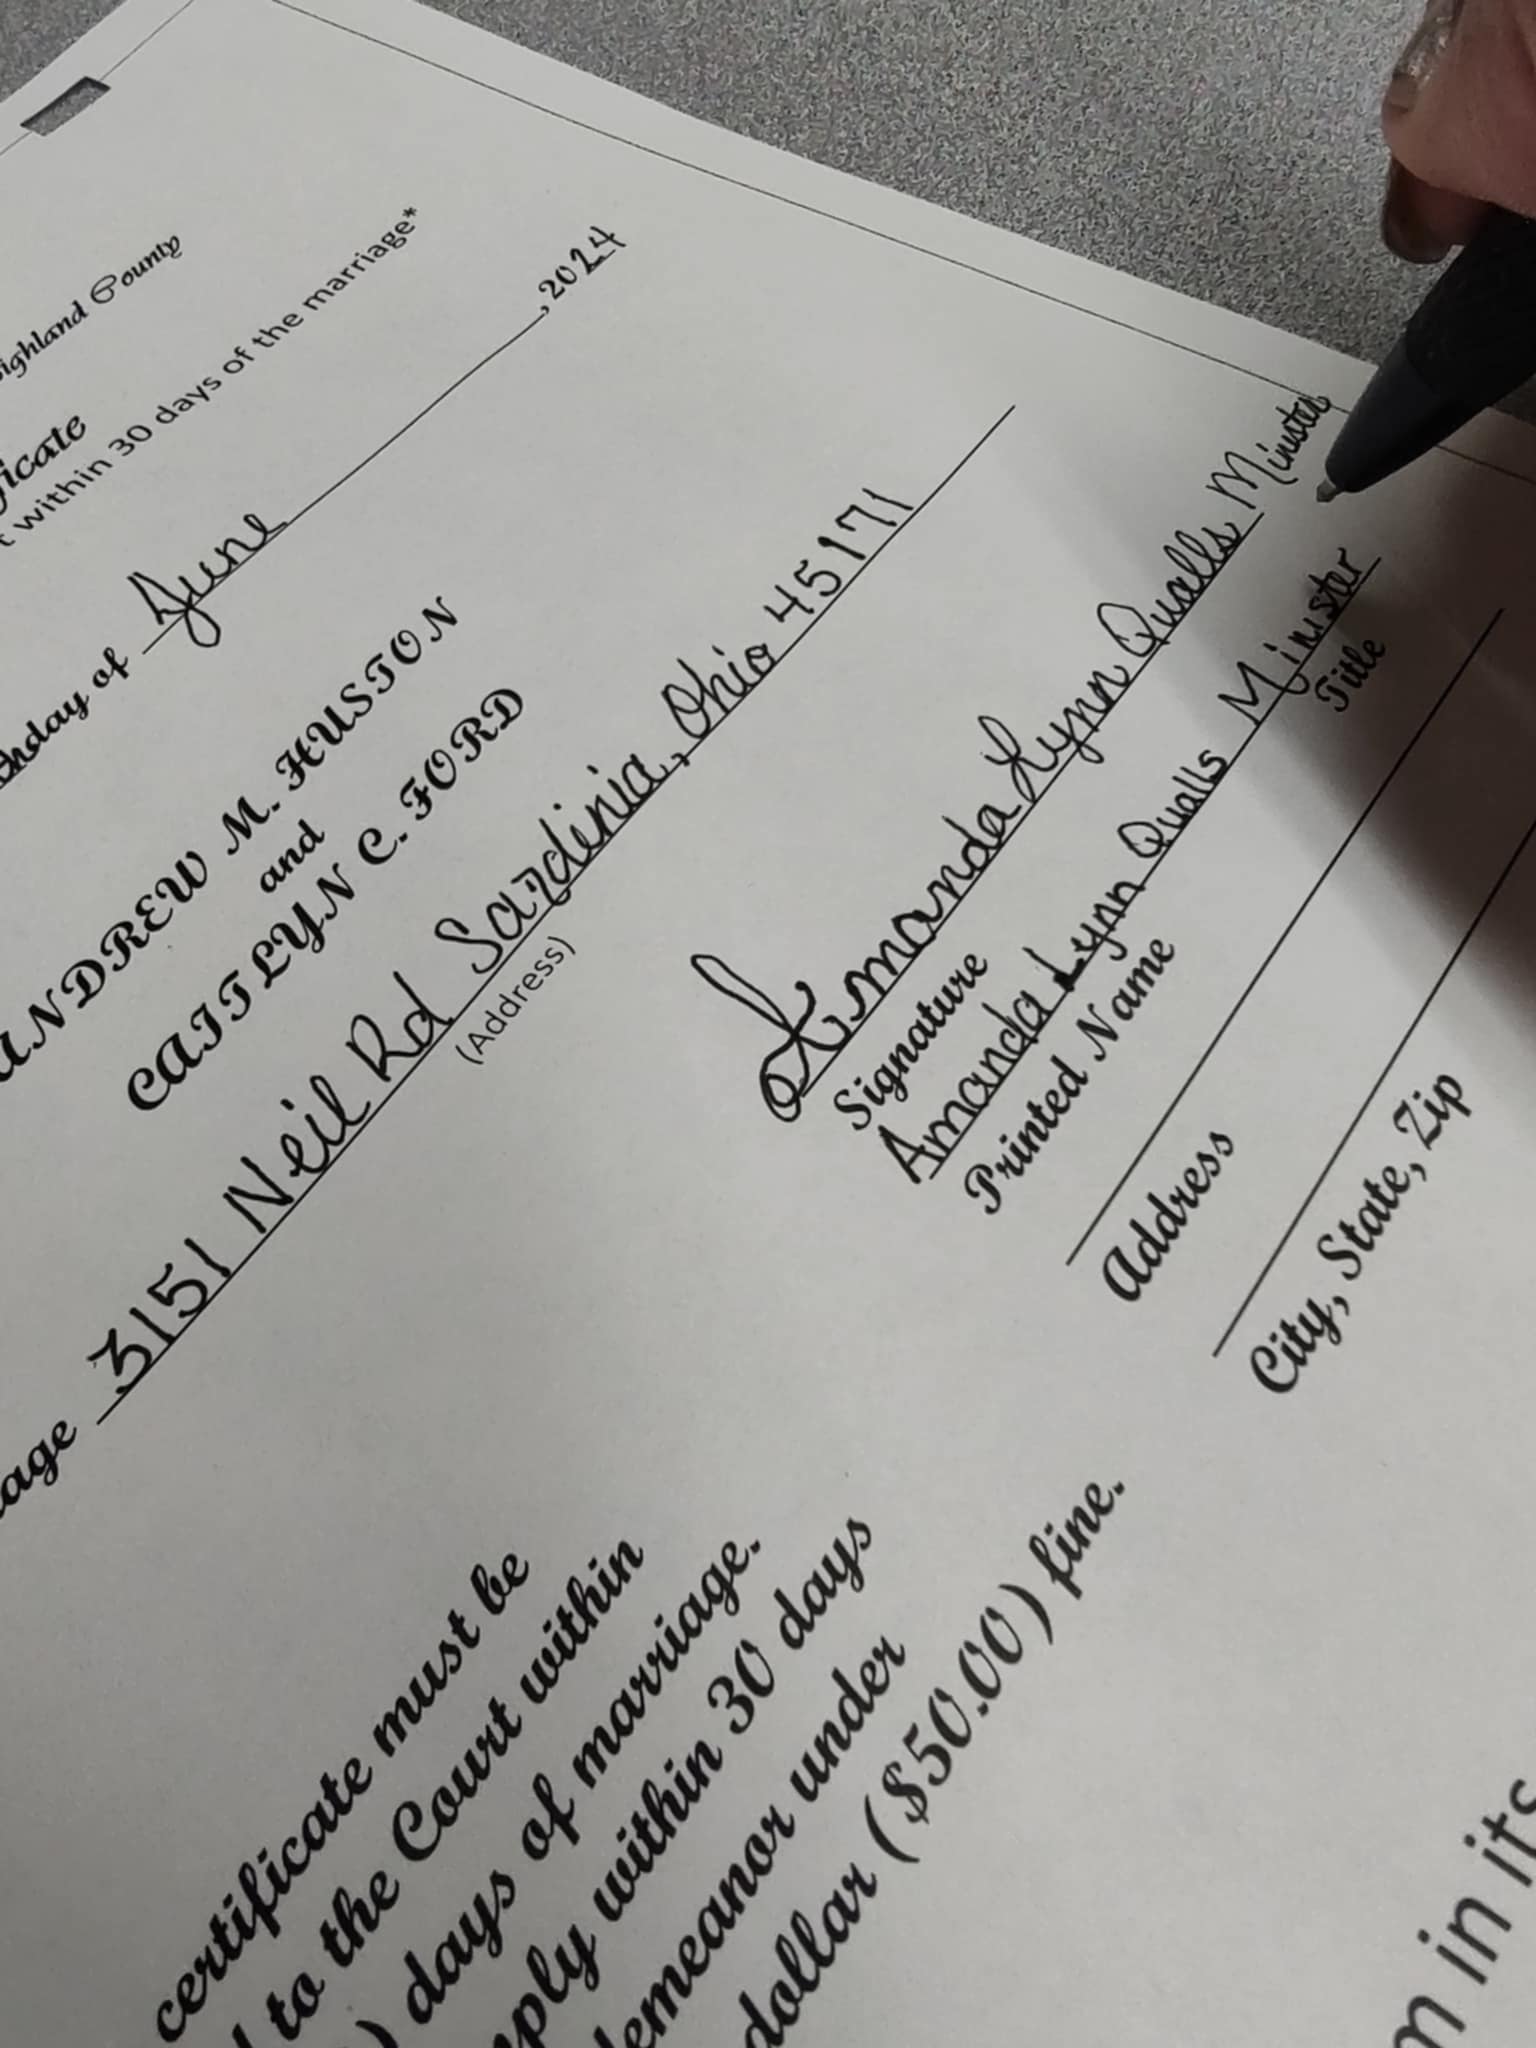 Highland County
within 30 days of the marriage*
day of June, 2024
ANDREW M. HUSTON
and
CAITLYN C. FORD
3151 Neil Rd Sardinia, Ohio 45171
(Address)
Amanda Lynn Qualls Minister
Signature
Amanda Lynn Qualls Minister
Printed Name Title
Address
City, State, Zip
certificate must be
to the Court within
) days of marriage.
within 30 days
under
dollar ($50.00) fine.
in its